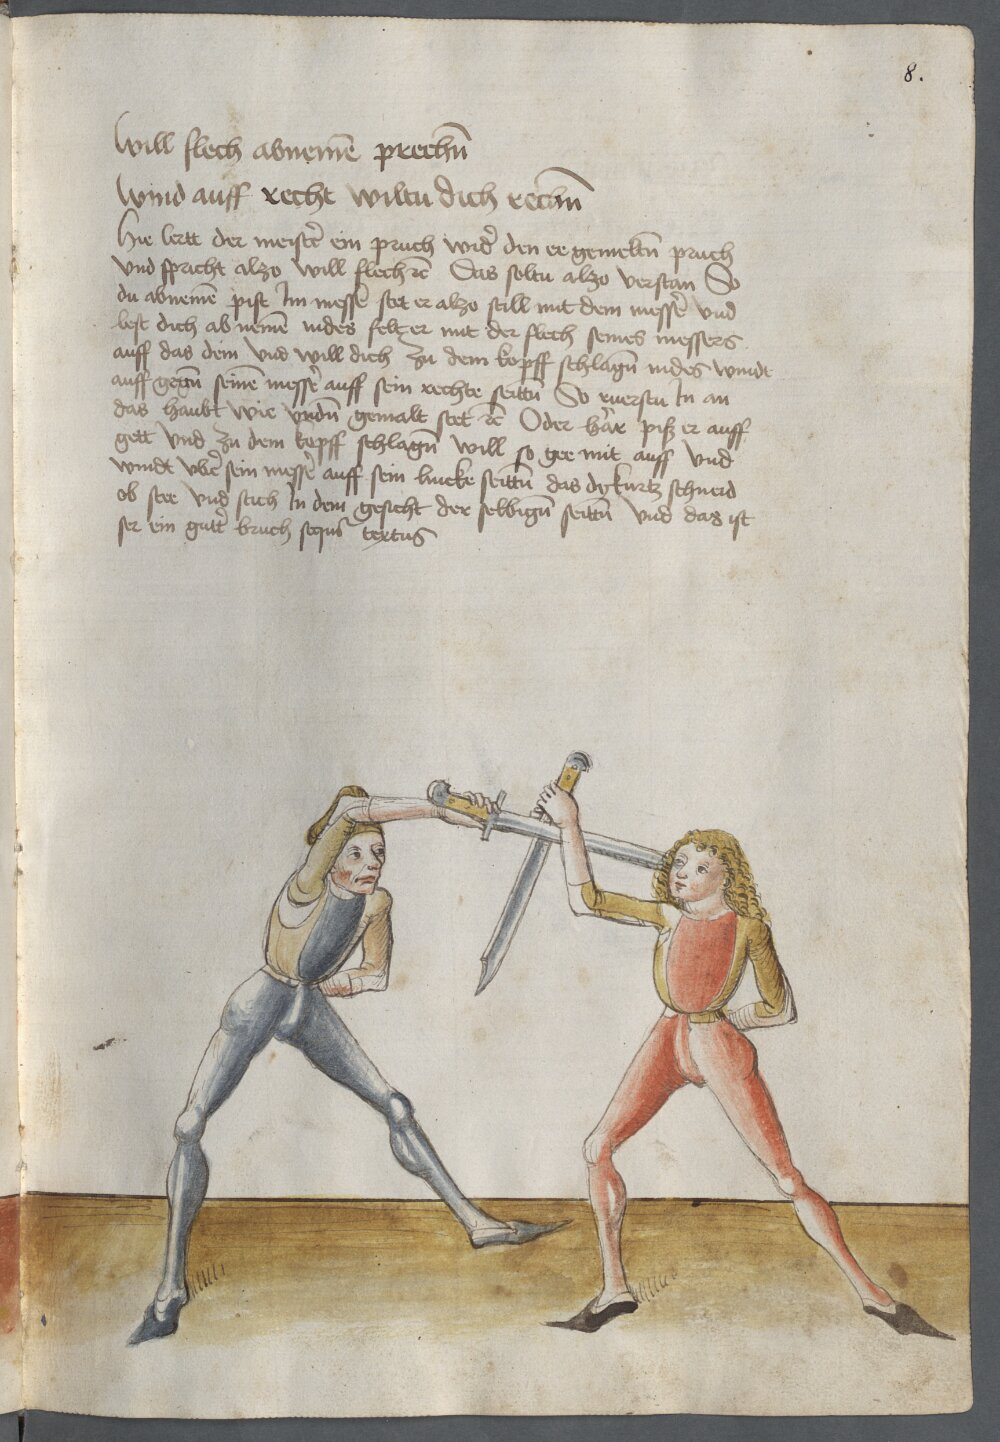 8.
Will flech abnemē prechn̄
Wind auff recht wiltu dich rechn̄
Hie lertt der meistē ein pruch wid̄ den ee gemeltn̄ pruch
Vnd spricht alzo will flech ꝛc̄ Das soltu alzo verstan So
du abnemē pist Im messē stet er alzo still mit dem messē vnd
lest dich ab nemē indes felt er mit der flech seines messers
auff das dein vnd will dich zu dem kopff schlagn̄ indes windt
auff gegn̄ seinē messē auff sein rechte seittn̄ So ruerstu In an
das haubt wie vndn̄ gemalt stet ꝛc̄ Oder hār piß er auff
gett vnd zu dem kopff schlagn̄ will so gee mit auff vnd
windt vbē sein messē auff sein lincke seittn̄ das dy kurtz schneid
ob stee vnd stich In dem gesicht der selbign̄ seittn̄ vnd das ist
ser ein gutt̄ bruch sequr̄ textus